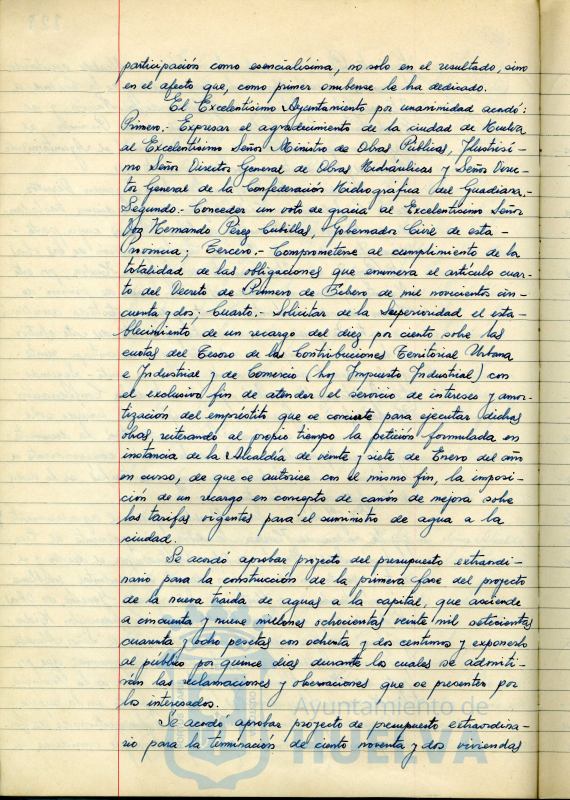 participación como esencialísima, no solo en el resultado, sino
en el afecto que, como primer onubense le ha dedicado.
El Excelentísimo Ayuntamiento por unanimidad acordó:
Primero.- Expresar el agradecimiento de la ciudad de Huelva
al Excelentísimo Señor Ministro de Obras Públicas, Ilustrísi-
mo Señor Director General de Obras Hidráulicas y Señor Direc-
tor General de la Confederación Hidrográfica del Guadiana.-
Segundo.- Conceder un voto de gracia al Excelentísimo Señor
Don Hernando Pérez Cubillas, Gobernador Civil de esta -
Provincia; Tercero.- Comprometerse al cumplimiento de la
totalidad de las obligaciones que enumera el artículo cuar-
to del Decreto de Primero de Febrero de mil novecientos cin-
cuenta y dos; Cuarto.- Solicitar de la Superioridad el esta-
blecimiento de un recargo del diez por ciento sobre las
cuotas del Tesoro de las Contribuciones Territorial Urbana
e Industrial y de Comercio (hoy Impuesto Industrial) con
el exclusivo fin de atender el servicio de intereses y amor-
tización del empréstito que se concierte para ejecutar dichas
obras, reiterando al propio tiempo la petición formulada en
instancia de la Alcaldía de veinte y siete de Enero del año
en curso, de que se autorice con el mismo fin, la imposi-
ción de un recargo en concepto de canon de mejora sobre
las tarifas vigentes para el suministro de agua a la
ciudad.
Se acordó aprobar proyecto del presupuesto extraordi-
nario para la construcción de la primera fase del proyecto
de la nueva traída de aguas a la capital, que asciende
a cincuenta y nueve millones ochocientas veinte mil setecientas
cuarenta y ocho pesetas con ochenta y dos centimos y exponerlo
al público por quince días durante los cuales se admiti-
rán las reclamaciones y observaciones que se presenten por
los interesados.
Se acordó aprobar proyecto de presupuesto extraordina-
rio para la terminación de ciento noventa y dos viviendas
Ayuntamiento de
HUELVA